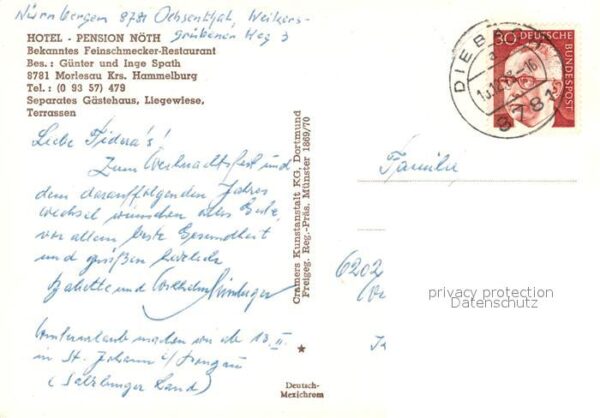 Nürnberger, 8781 Ochsenthal, Weikers-
grübener Weg 3
HOTEL - PENSION NÖTH
Bekanntes Feinschmecker-Restaurant
Bes.: Günter und Inge Spath
8781 Morlesau Krs. Hammelburg
Tel.: (0 93 57) 479
Separates Gästehaus, Liegewiese,
Terrassen
Liebe
Zum Weihnachtsfest und
dem darauffolgenden Jahres
wechsel wünschen alles Gute,
vor allem beste Gesundheit
und grüßen herzlich
Babette und Wilhelm Nürnberger
Winterurlaub machen wir ab 13. II.
in St. Johann i/Pongau
(Salzburger Land)
Cramers Kunstanstalt KG, Dortmund
Freigeg. Reg.-Präs. Münster 1869/70
Deutsch-
Mexichrom
30 DEUTSCHE
BUNDESPOST
8781
Familie
6202
privacy protection
Datenschutz